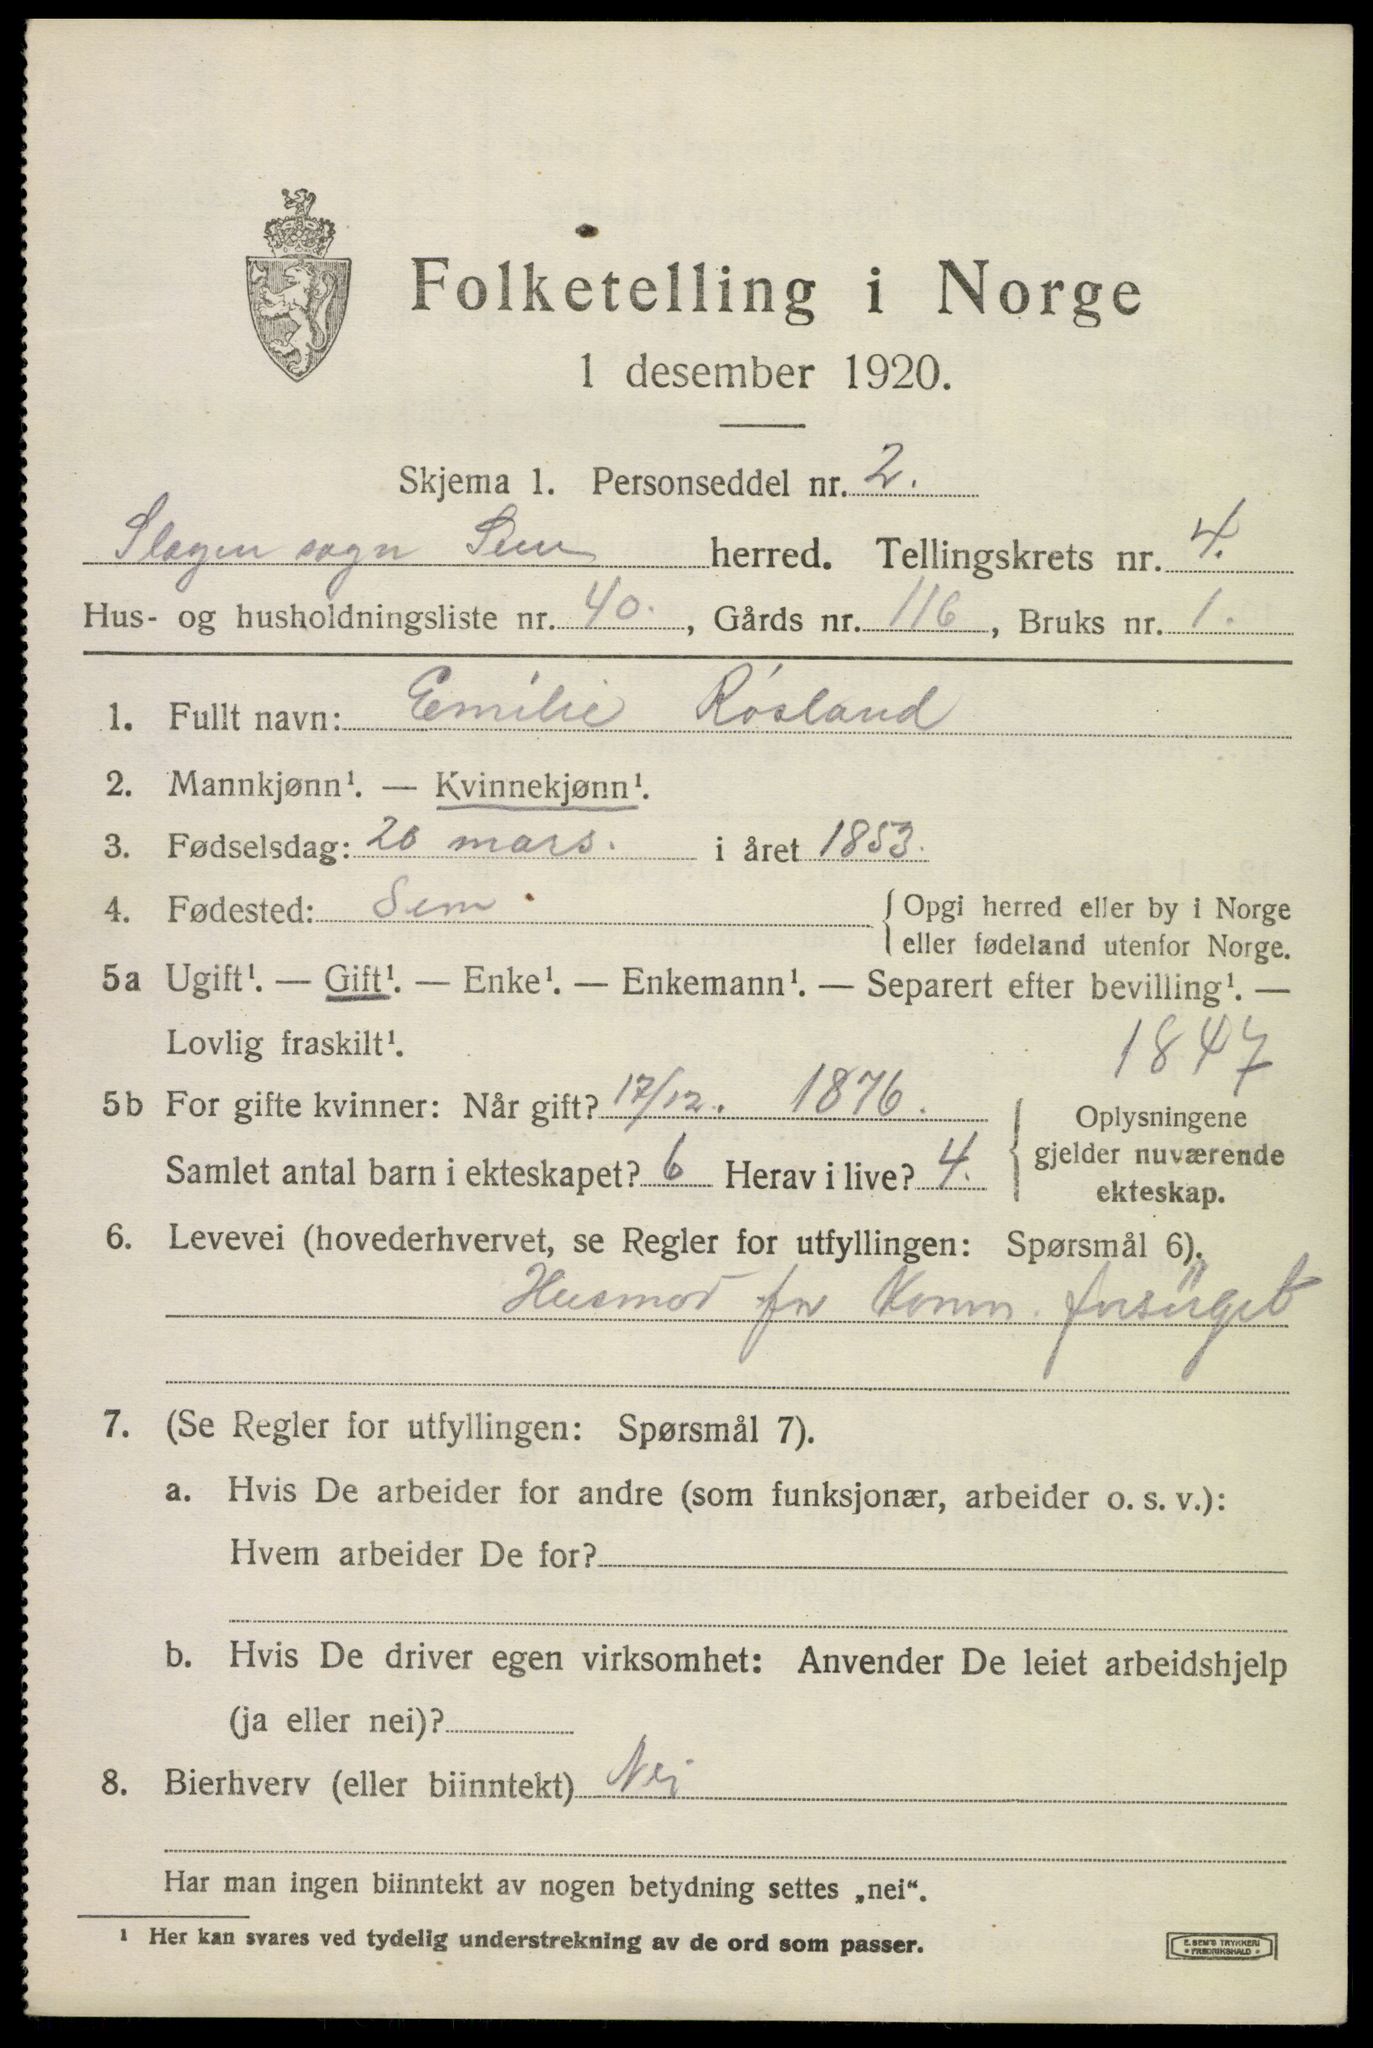 Folketelling i Norge
1 desember 1920.
Skjema 1. Personseddel nr. 2.
Slagen sogn Sem herred. Tellingskrets nr. 4.
Hus- og husholdningsliste nr. 40., Gårds nr. 116, Bruks nr. 1.
1. Fullt navn: Emilie Røsland
2. Mannkjønn¹. — Kvinnekjønn¹.
3. Fødselsdag: 20 mars. i året 1853.
4. Fødested: Sem { Opgi herred eller by i Norge
eller fødeland utenfor Norge.
5a Ugift¹. — Gift¹. — Enke¹. — Enkemann¹. — Separert efter bevilling¹. —
Lovlig fraskilt¹.
1847
5b For gifte kvinner: Når gift? 17/12. 1876.
Samlet antal barn i ekteskapet? 6 Herav i live? 4.
{ Oplysningene
gjelder nuværende
ekteskap.
6. Levevei (hovederhvervet, se Regler for utfyllingen: Spørsmål 6).
Husmor fr Komm. forsørget
7. (Se Regler for utfyllingen: Spørsmål 7).
a. Hvis De arbeider for andre (som funksjonær, arbeider o. s. v.):
Hvem arbeider De for?
b. Hvis De driver egen virksomhet: Anvender De leiet arbeidshjelp
(ja eller nei)?
8. Bierhverv (eller biinntekt) Nei
Har man ingen biinntekt av nogen betydning settes „nei“.
¹ Her kan svares ved tydelig understrekning av de ord som passer.
E. SEM'S TRYKKERI
FREDRIKSHALD